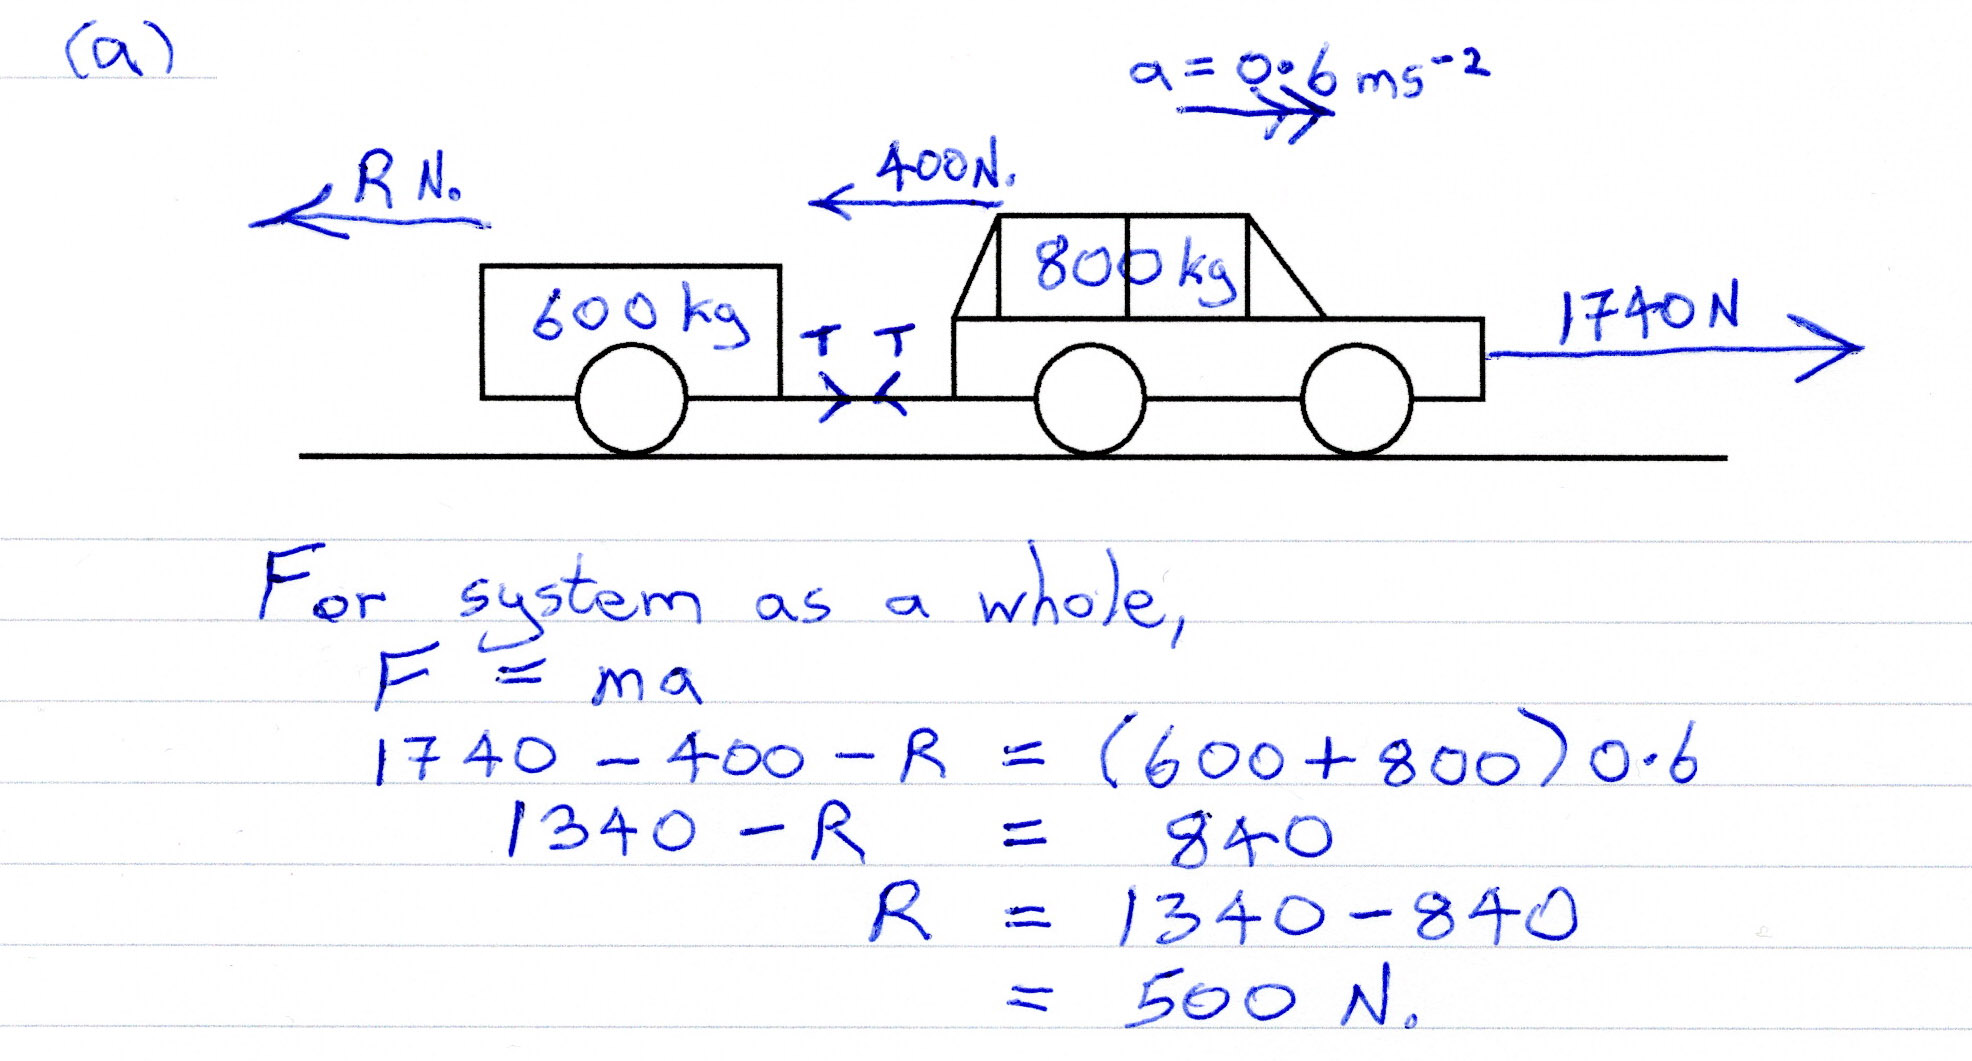 (a)
a = 0.6 ms⁻²
R N.
400N.
800kg
600kg
T T
1740N
For system as a whole,
F = ma
1740 - 400 - R = (600+800)0.6
1340 - R = 840
R = 1340-840
= 500 N.